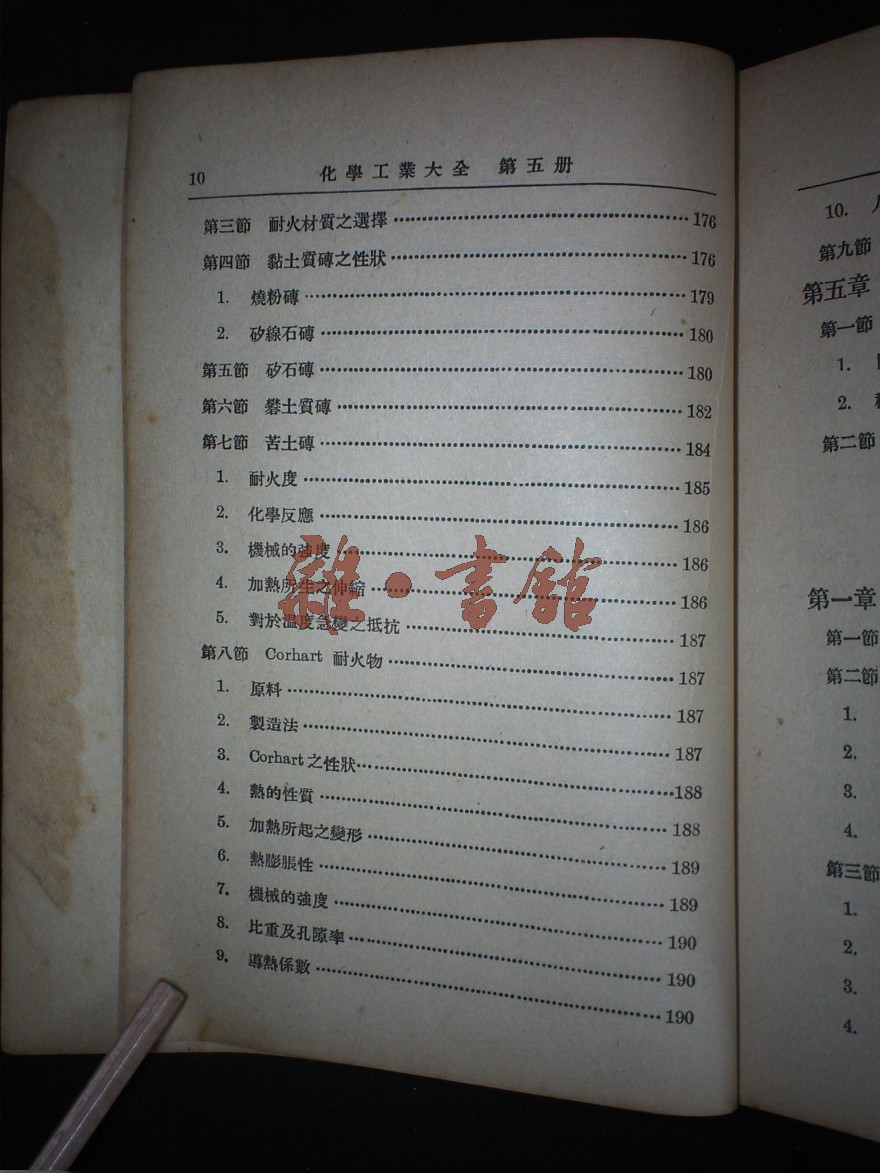 10 化學工業大全 第五册
第三節 耐火材質之選擇 176
第四節 黏土質磚之性狀 176
1. 燒粉磚 179
2. 矽線石磚 180
第五節 矽石磚 180
第六節 礬土質磚 182
第七節 苦土磚 184
1. 耐火度 185
2. 化學反應 186
3. 機械的強度 186
4. 加熱所生之伸縮 186
5. 對於温度急變之抵抗 187
第八節 Corhart 耐火物 187
1. 原料 187
2. 製造法 187
3. Corhart之性狀 188
4. 熱的性質 188
5. 加熱所起之變形 189
6. 熱膨脹性 189
7. 機械的強度 190
8. 比重及孔隙率 190
9. 導熱係數 190
雜·書館
10.
第九節
第五章
第一節
1.
2.
第二節
第一章
第一節
第二節
1.
2.
3.
4.
第三節
1.
2.
3.
4.